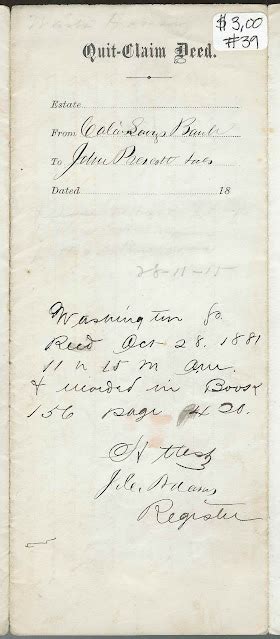 $3,00
#39
Quit-Claim Deed.
Estate
From Calais Savgs Bank
To John Prescott
Dated 18
28-11-15
Washington So
Recd Oct 28. 1881
11 h 15 m A.M.
& recorded in Book
156 page 420.
Attest
J.C. Adams
Register